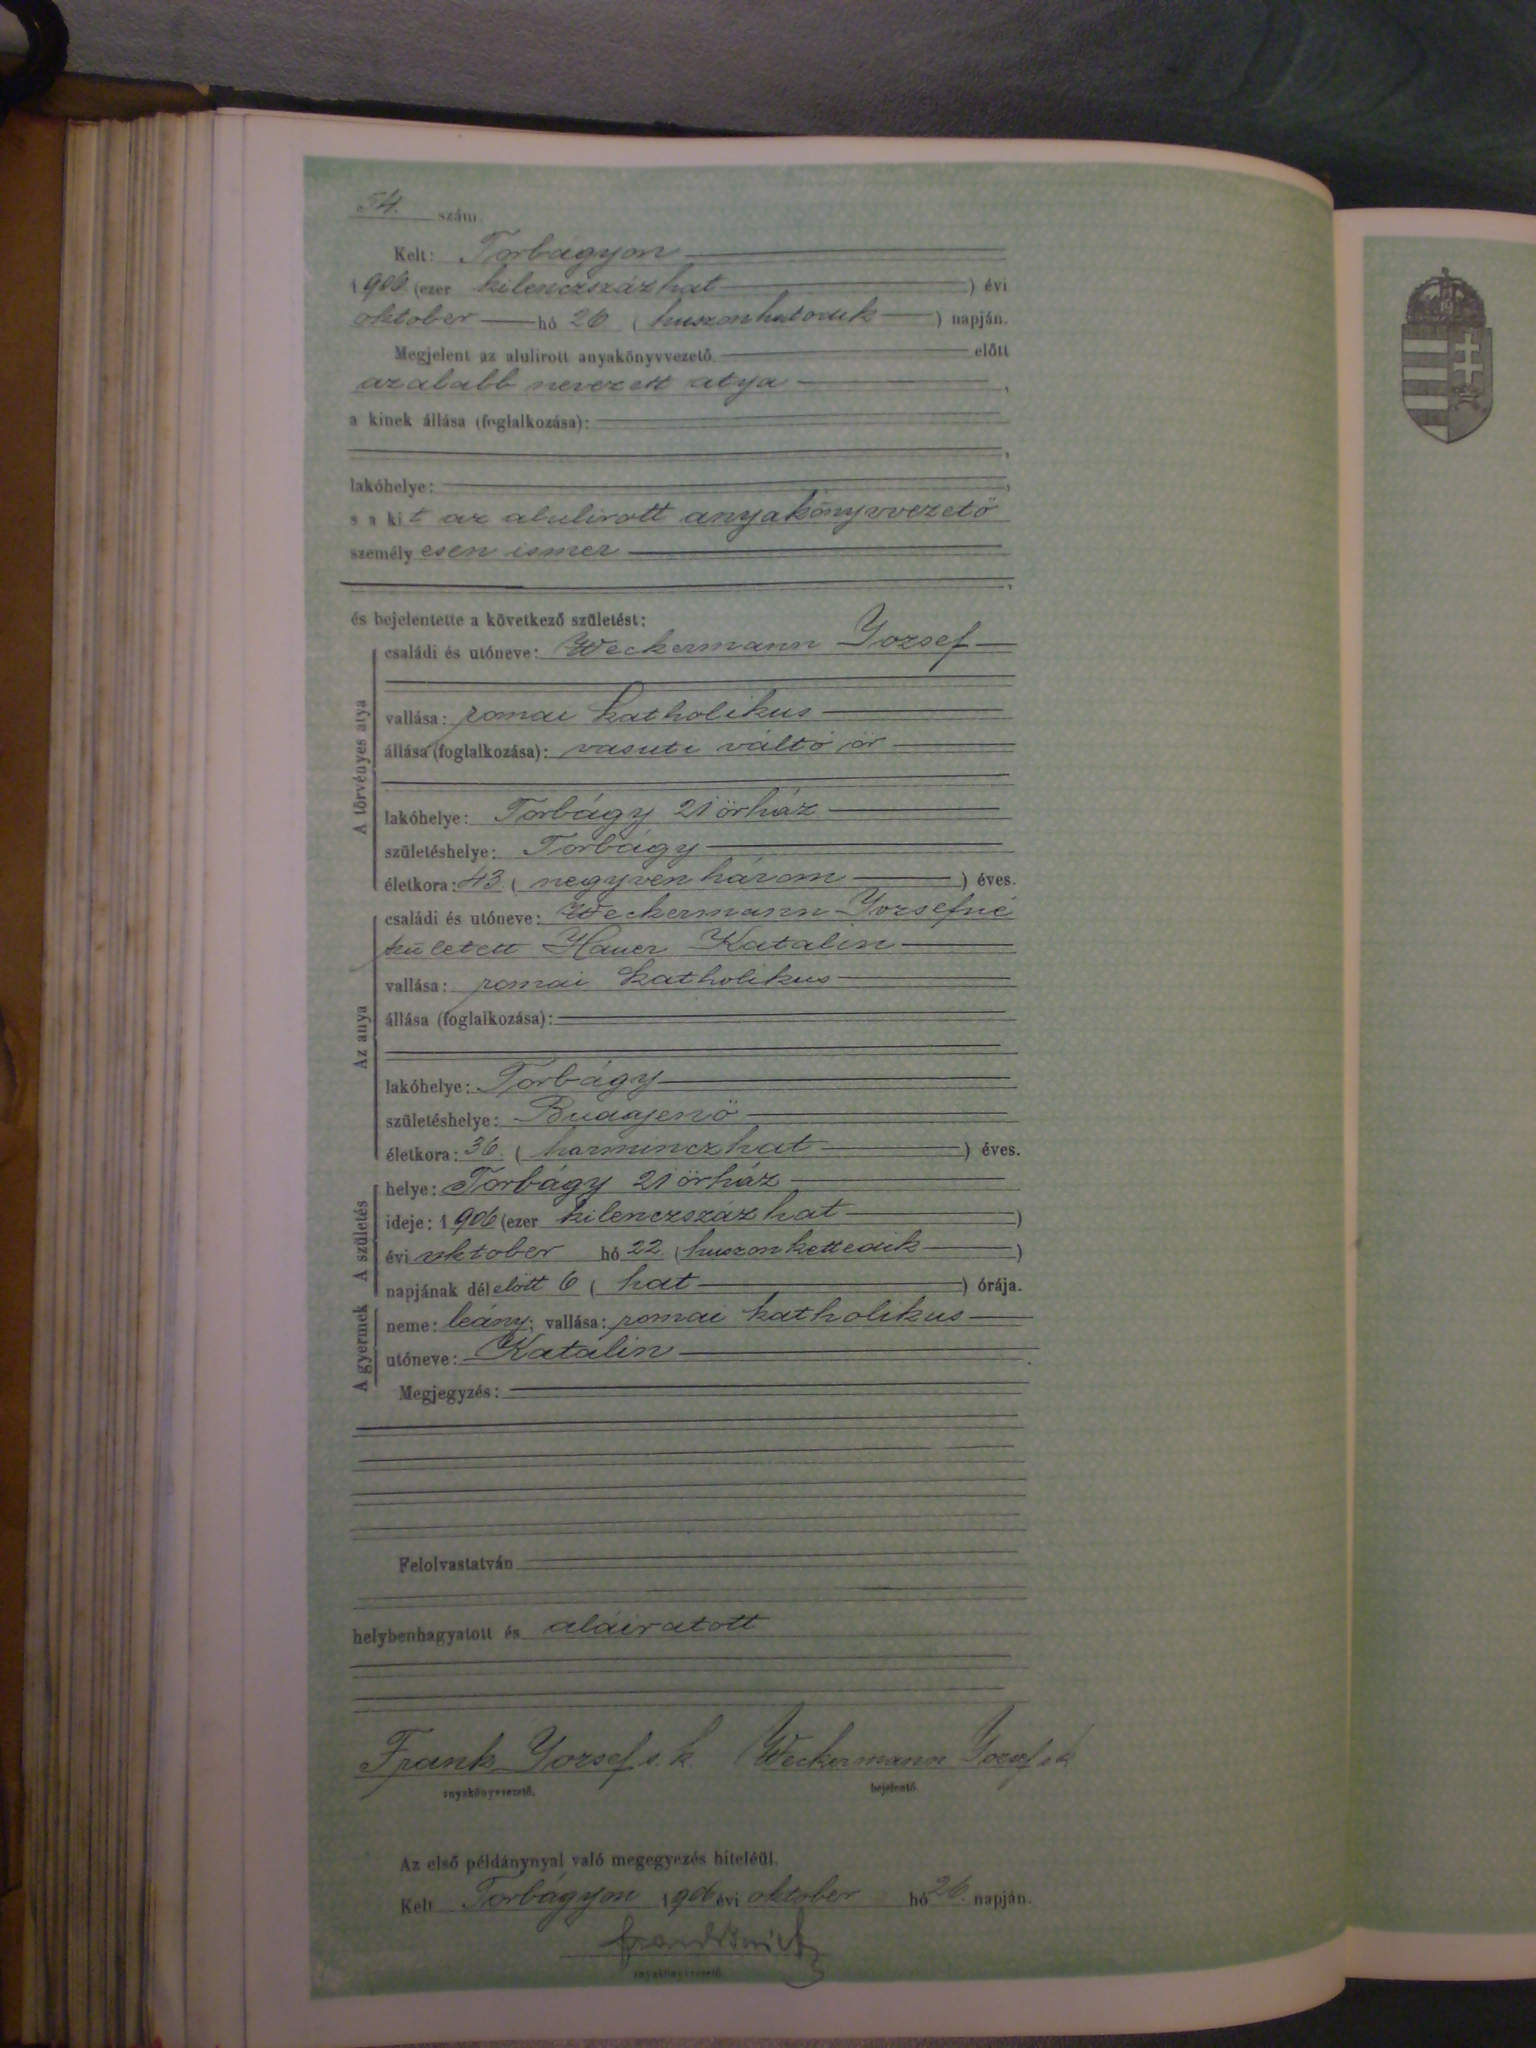 54. szám.
Kelt: Torbágyon
1906 (ezer kilenczszáz hat ) évi
oktober hó 26 ( huszonhatodik ) napján.
Megjelent az alulirott anyakönyvvezető előtt
az alabb nevezett atya ,
a kinek állása (foglalkozása):
,
lakóhelye: ,
s a kit az alulirott anyakönyvvezető
személyesen ismer
,
és bejelentette a következő születést:
A törvényes atya
családi és utóneve: Weckermann Jozsef
vallása: romai katholikus
állása (foglalkozása): vasuti váltó őr
lakóhelye: Torbágy 21 őrház
születéshelye: Torbágy
életkora: 43 ( negyven három ) éves.
Az anya
családi és utóneve: Weckermann Jozsefné
született Hauer Katalin
vallása: romai katholikus
állása (foglalkozása):
lakóhelye: Torbágy
születéshelye: Budajenő
életkora: 36. ( harmincz hat ) éves.
A születés
helye: Torbágy 21 őrház
ideje: 1906 (ezer kilenczszáz hat )
évi oktober hó 22. (huszonkettedik )
napjának délelőtt 6 ( hat ) órája.
A gyermek
neme: leány; vallása: romai katholikus
utóneve: Katalin .
Megjegyzés:
Felolvastatván
helybenhagyatott és aláiratott
Frank Jozsef s. k. Weckermann Jozsef sk
anyakönyvvezető. bejelentő.
Az első példánynyal való megegyezés hiteléül.
Kelt Torbágyon 1906 évi oktober hó 26. napján.
anyakönyvvezető.